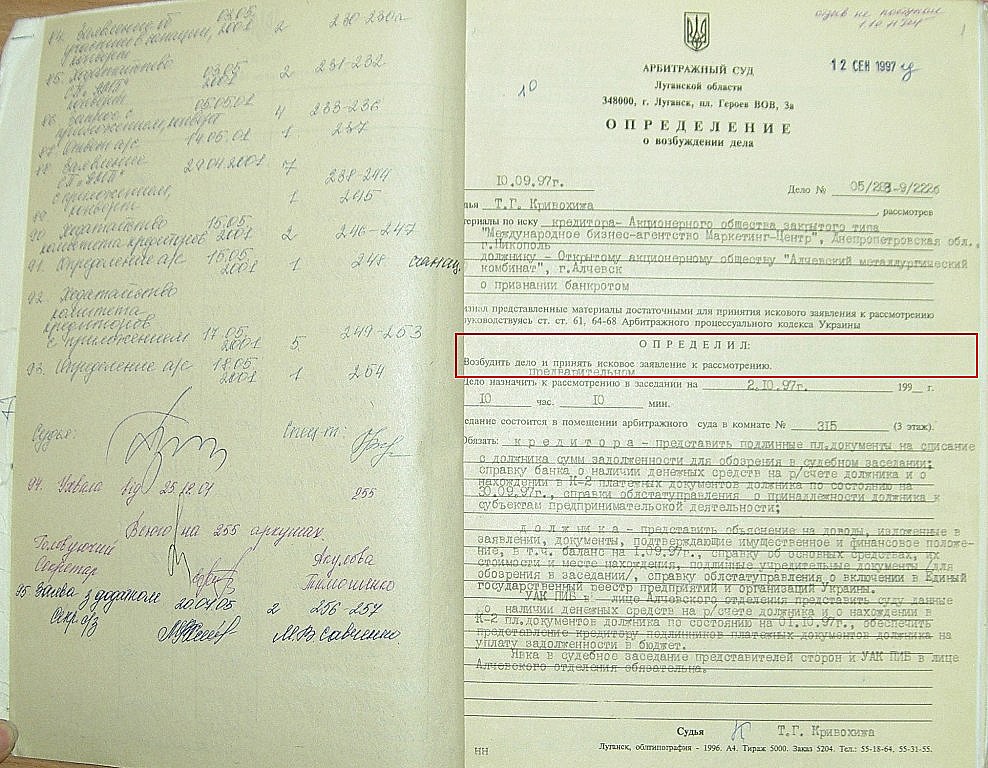 84. Заявление об 03.05. 2 230-230а
участии в санации, 2001
конверт
85. Ходатайство 03.05. 2 231-232
2001
конверт
86. Запрос с 05.05.01 4 233-236
приложением, конверт
87. Ответ а/с 14.05.01 1 237
88. Заявление 29.04.2001 7 238-244
с приложением,
89. конверт 1 245
90. Ходатайство 15.05. 2 246-247
комитета кредиторов 2001
91. Определение а/с 15.05. 1 248 санац.
2001
92. Ходатайство
комитета
кредиторов
с приложением 17.05. 5 249-253
2001
93. Определение а/с 18.05. 1 254
2001
Судья: Спец-т:
94. Ухвала від 25.12.01 255
Всього на 255 аркушах.
Головуючий Акулова
Секретар Тимошенко
95 Заява з додатком 20.07.05 2 256-257
Скр о/з М.В. Савченко
отзыв не поступил
АРБИТРАЖНЫЙ СУД
Луганской области
348000, г. Луганск, пл. Героев ВОВ, 3а
12 СЕН 1997
10
ОПРЕДЕЛЕНИЕ
о возбуждении дела
10.09.97г.
Дело № 05/283-9/222б
дья Т.Г. Кривохижа, рассмотрев
териалы по иску кредитора- Акционерного общества закрытого типа
"Международное бизнес-агентство Маркетинг-Центр", Днепропетровская обл.,
г.Никополь
должнику - Открытому акционерному обществу "Алчевский металлургический
комбинат", г.Алчевск
о признании банкротом
изнал представленные материалы достаточными для принятия искового заявления к рассмотрению
руководствуясь ст. ст. 61, 64-68 Арбитражного процессуального кодекса Украины
ОПРЕДЕЛИЛ:
Возбудить дело и принять исковое заявление к рассмотрению.
предварительном
Дело назначить к рассмотрению в заседании на 2.10.97г. 199_ г.
10 час. 10 мин.
седание состоится в помещении арбитражного суда в комнате № 315 (3 этаж).
Обязать: кредитора - представить подлинные пл.документы на списание
с должника суммы задолженности для обозрения в судебном заседании;
справку банка о наличии денежных средств на р/счете должника и о
нахождении в К-2 платежных документов должника по состоянию на
30.09.97г., справки облстатуправления о принадлежности должника к
субъектам предпринимательской деятельности;
должника - представить объяснение на доводы, изложенные в
заявлении, документы, подтверждающие имущественное и финансовое положе-
ние, в т.ч. баланс на 1.09.97г., справку об основных средствах, их
стоимости и месте нахождения, подлинные учредительные документы /для
обозрения в заседании/, справку облстатуправления о включении в Единый
государственный реестр предприятий и организаций Украины.
УАК ПИБ в лице Алчевского отделения представить суду данные
о наличии денежных средств на р/счете должника и о нахождении в
К-2 пл.документов должника по состоянию на 01.10.97г., обеспечить
представление кредитору подлинников платежных документов должника на
уплату задолженности в бюджет.
Явка в судебное заседание представителей сторон и УАК ПИБ в лице
Алчевского отделения обязательна.
Судья Т.Г. Кривохижа
НН Луганск, облтипография - 1996. А4. Тираж 5000. Заказ 5204. Тел.: 55-18-64, 55-31-55.